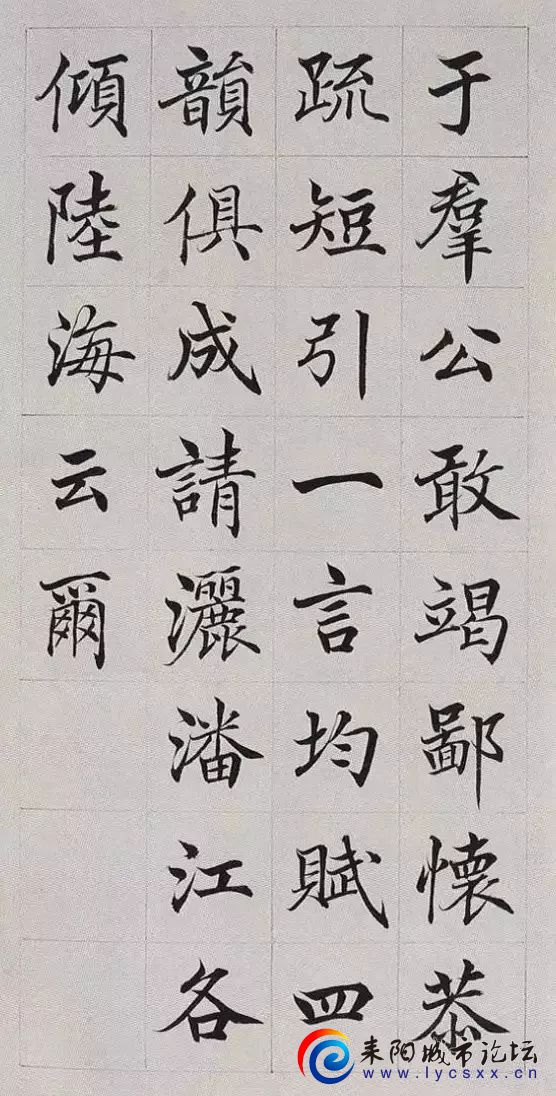 于羣公敢竭鄙懷恭
疏短引一言均賦四
韻俱成請灑潘江各
傾陸海云爾
耒阳城市论坛
www.lycsxx.cn